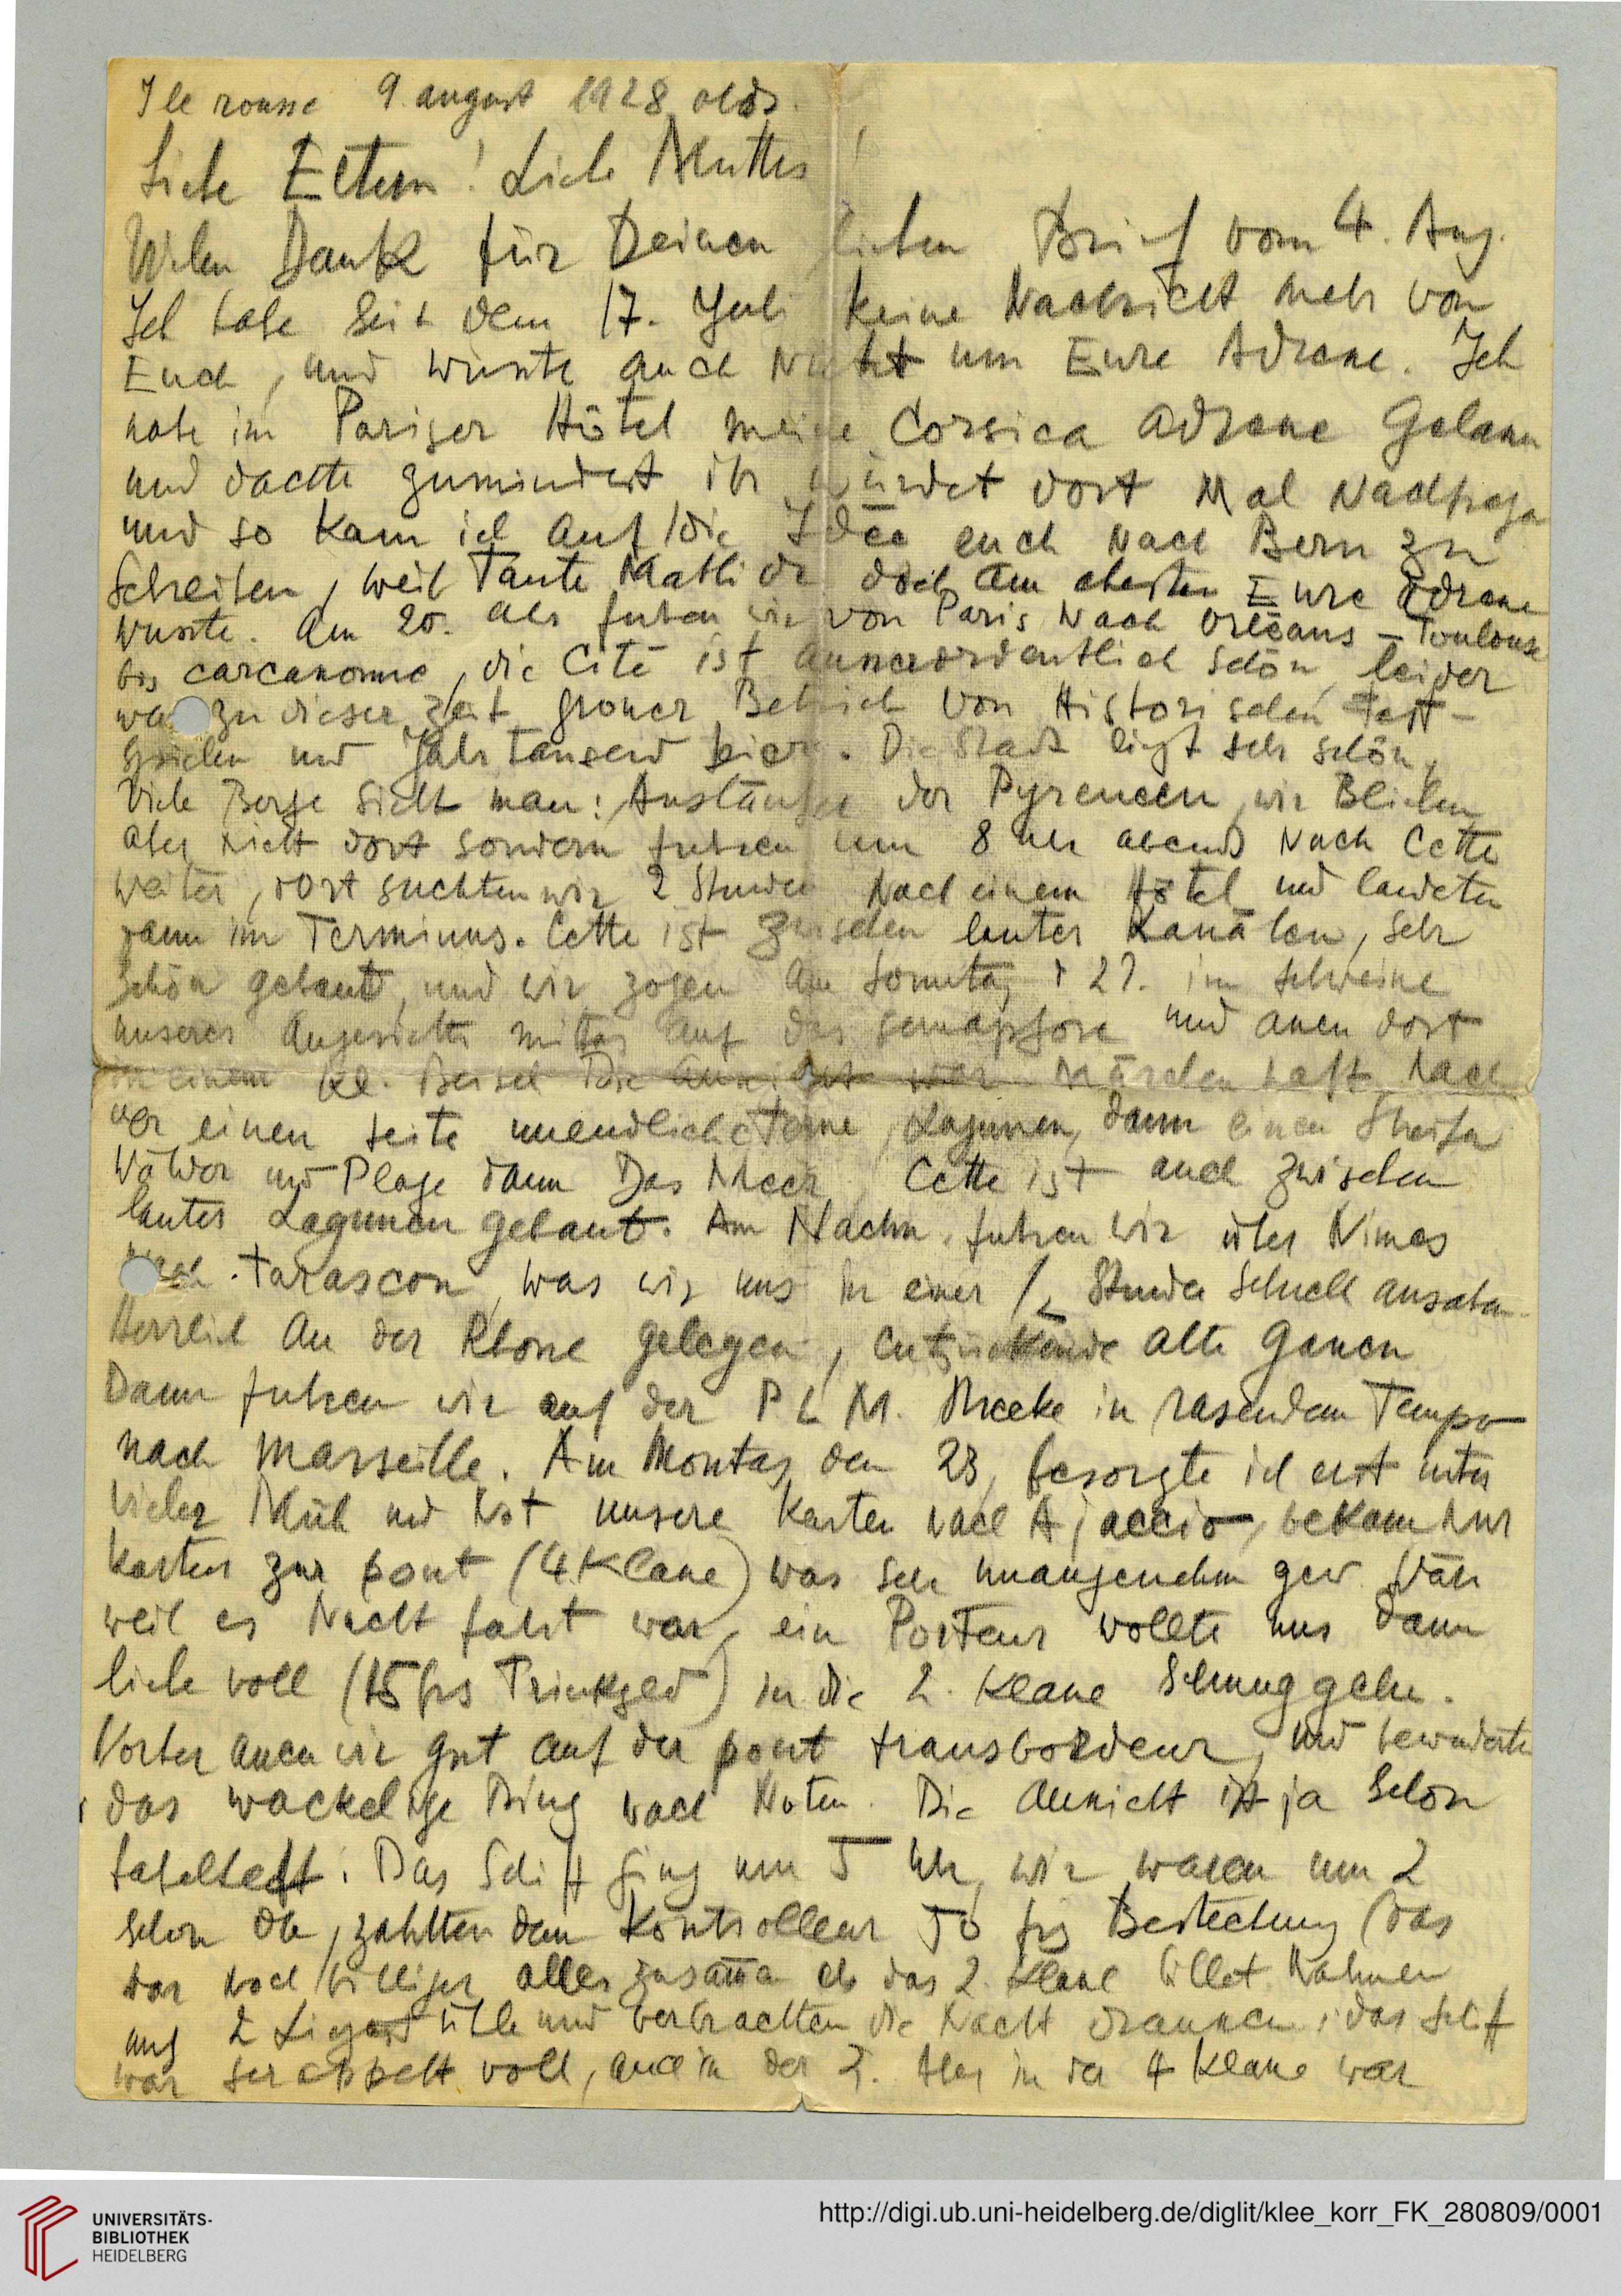 Ile rousse 9. august 1928 olds.
Liebe Eltern! Liebe Mutter!
Vielen Dank für Deinen lieben Brief vom 4. Aug.
Ich habe seit dem 17. Juli keine Nachricht mehr von
Euch, und wusste auch nicht um Eure Adresse. Ich
habe im Pariser Hôtel meine Corsica adresse gelassen
und dachte zumindest ihr würdet dort mal nachfragen
und so kam ich auf die Idee euch nach Bern zu
schreiben, weil Tante Mathilde doch am ehesten Eure adresse
wusste. Am 20. als fuhren wir von Paris nach Orléans – Toulouse
bis carcassonne, die Cité ist ausserordentlich schön, leider
war zu dieser zeit grosser Betrieb von Historischen Fest-
spielen und Jahrtausend feier. Die Stadt liegt sehr schön,
Viele Berge sieht man: Ausläufer der Pyreneen, wir Blieben
aber nicht dort sondern fuhren um 8 uhr abends nach Cette
weiter, dort suchten wir 2 Stunden nach einem Hôtel und landeten
dann im Terminus. Cette ist zwischen lauter Kanälen, sehr
schön gebaut, und wir zogen am Sonntag 22. im schweisse
unseres Angesichts mittag auf das semaphore und assen dort
in einem kl. Beisel Die aussicht war märchenhaft nach
der einen seite unendliche, Lagunen, dann einen Streifen
Wälder und Plage dann Das Meer, Cette ist auch zwischen
lauter Lagunen gebaut. Am Nachm. fuhren wir über Nimes
nach Tarascon, was wir uns in einer 1/2 Stunde schnell ansahen.
Herrlich an der Rhone gelegen, entzückende alte Gassen
Dann fuhren wir auf der P L M. Strecke in rasendem Tempo
nach Marseille. Am Montag den 23, besorgte ich erst unter
vieler Müh und Not unsere Karten nach Ajaccio, bekam nur
karten zur pont (4 Klasse) was sehr unangenehm gew. wär
weil es Nacht fahrt war, ein Porteur wollte uns dann
liebe voll (15 frs Trinkgeld) in die 2. Klasse schmuggeln.
Vorher assen wir gut auf der pont transbordeur, und bewunderten
das wackelige Ding nach Noten. Die Aussicht ist ja schon
fabelhaft. Das Schiff ging um 5 Uhr, wir waren um 2
schon da, zahlten dem Kontrolleur 50 frs Bestechung (das
war noch billiger alles zusam̄en als das 2. Klasse billet nahmen
uns 2 Liegestühle und verbrachten die Nacht draussen, das schiff
war gerappelt voll, auch in der 2. Aber in der 4 Klasse war
UNIVERSITÄTS-
BIBLIOTHEK
HEIDELBERG
http://digi.ub.uni-heidelberg.de/diglit/klee_korr_FK_280809/0001